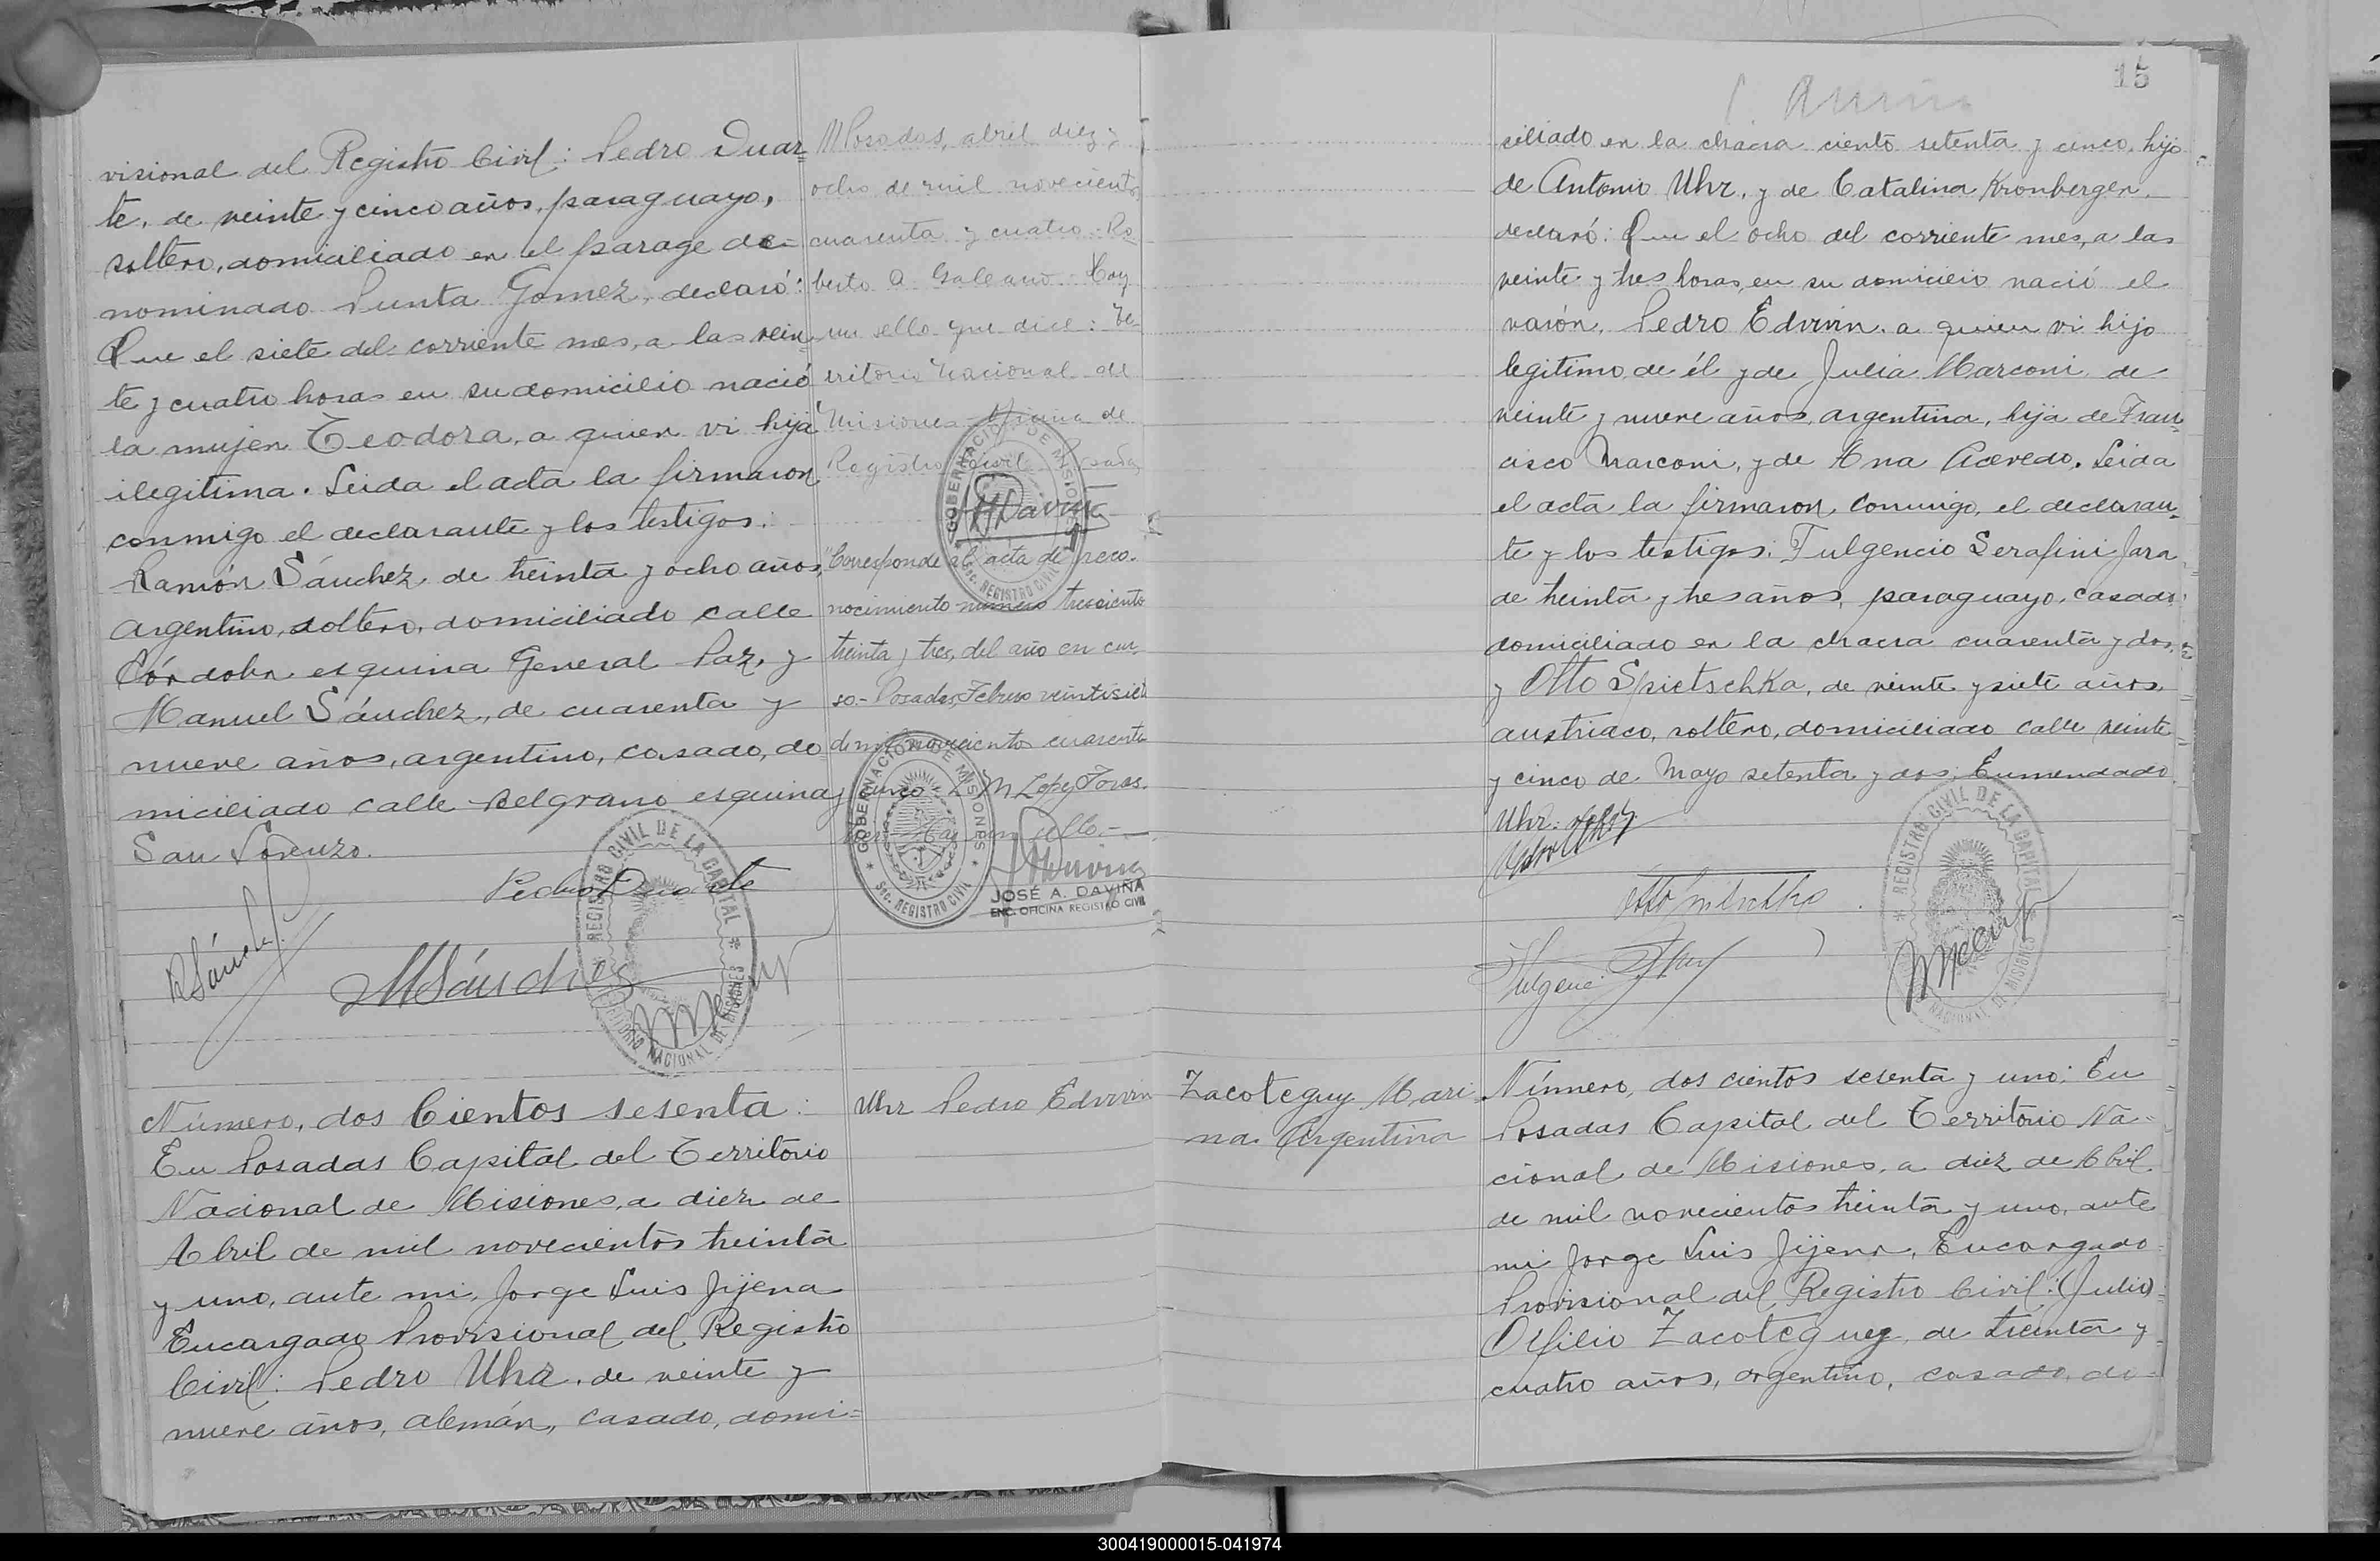 visional del Registro Civil: Pedro Duar=
te, de veinte y cinco años, paraguayo,
soltero, domiciliado en el parage de=
nominado Punta Gomez, declaró:
Que el siete del corriente mes, a las vein=
te y cuatro horas en su domicilio nació
la mujer Teodora, a quien vi hija
ilegitima. Leida el acta la firmaron
conmigo el declarante y los testigos:
Ramón Sánchez, de treinta y ocho años,
argentino, soltero, domiciliado calle
Córdoba esquina General Paz, y
Manuel Sánchez, de cuarenta y
nueve años, argentino, casado, do=
miciliado calle Belgrano esquina
San Lorenzo.
Pedro Duarte
R Sánchez
M Sánchez
REGISTRO CIVIL DE LA CAPITAL
TERRITORIO NACIONAL DE MISIONES
Posadas, abril diez y
ocho de mil novecientos
cuarenta y cuatro. Ro=
berto A Galeano. Hay
un sello que dice: Te=
rritorio Nacional de
Misiones - Oficina de
Registro Civil Posadas
GOBERNACION DE MISIONES
SEC. REGISTRO CIVIL
"Corresponde al acta de reco-
nocimiento número trescientos
treinta y tres, del año en cur-
so.- Posadas, Febrero veintisiete
de mil novecientos cuarenta
y cinco
Hay un sello.-
GOBERNACION DE MISIONES
SEC. REGISTRO CIVIL
JOSÉ A. DAVIÑA
ENC. OFICINA REGISTRO CIVIL
Número, dos Cientos sesenta:
En Posadas Capital del Territorio
Nacional de Misiones, a diez de
Abril de mil novecientos treinta
y uno, ante mi, Jorge Luis Jijena
Encargado Provisional del Registro
Civil: Pedro Uhr, de veinte y
nueve años, alemán, casado, domi=
Uhr Pedro Edvvin
15
ciliado en la chacra ciento setenta y cinco, hijo
de Antonio Uhr, y de Catalina Kronberger,
declaró: Que el ocho del corriente mes, a las
veinte y tres horas, en su domicilio nació el
varón, Pedro Edvvin, a quien vi hijo
legitimo de él y de Julia Marconi, de
veinte y nueve años, argentina, hija de Fran=
cisco Marconi, y de Ana Acevedo. Leida
el acta la firmaron, conmigo, el declaran=
te y los testigos: Fulgencio Serafini Jara
de treinta y tres años, paraguayo, casado,
domiciliado en la chacra cuarenta y dos,
y Otto Spietschka, de veinte y siete años,
austriaco, soltero, domiciliado calle veinte
y cinco de Mayo setenta y dos: Enmendado
Uhr:
REGISTRO CIVIL DE LA CAPITAL
NACIONAL DE MISIONES
Zacoteguy Mari=
na Argentina
Número, dos cientos sesenta y uno: En
Posadas Capital del Territorio Na=
cional de Misiones, a diez de Abril
de mil novecientos treinta y uno, ante
mi Jorge Luis Jijena, Encargado
Provisional del Registro Civil: (Julio)
Otilio Zacoteguy, de treinta y
cuatro años, argentino, casado, do=
300419000015-041974